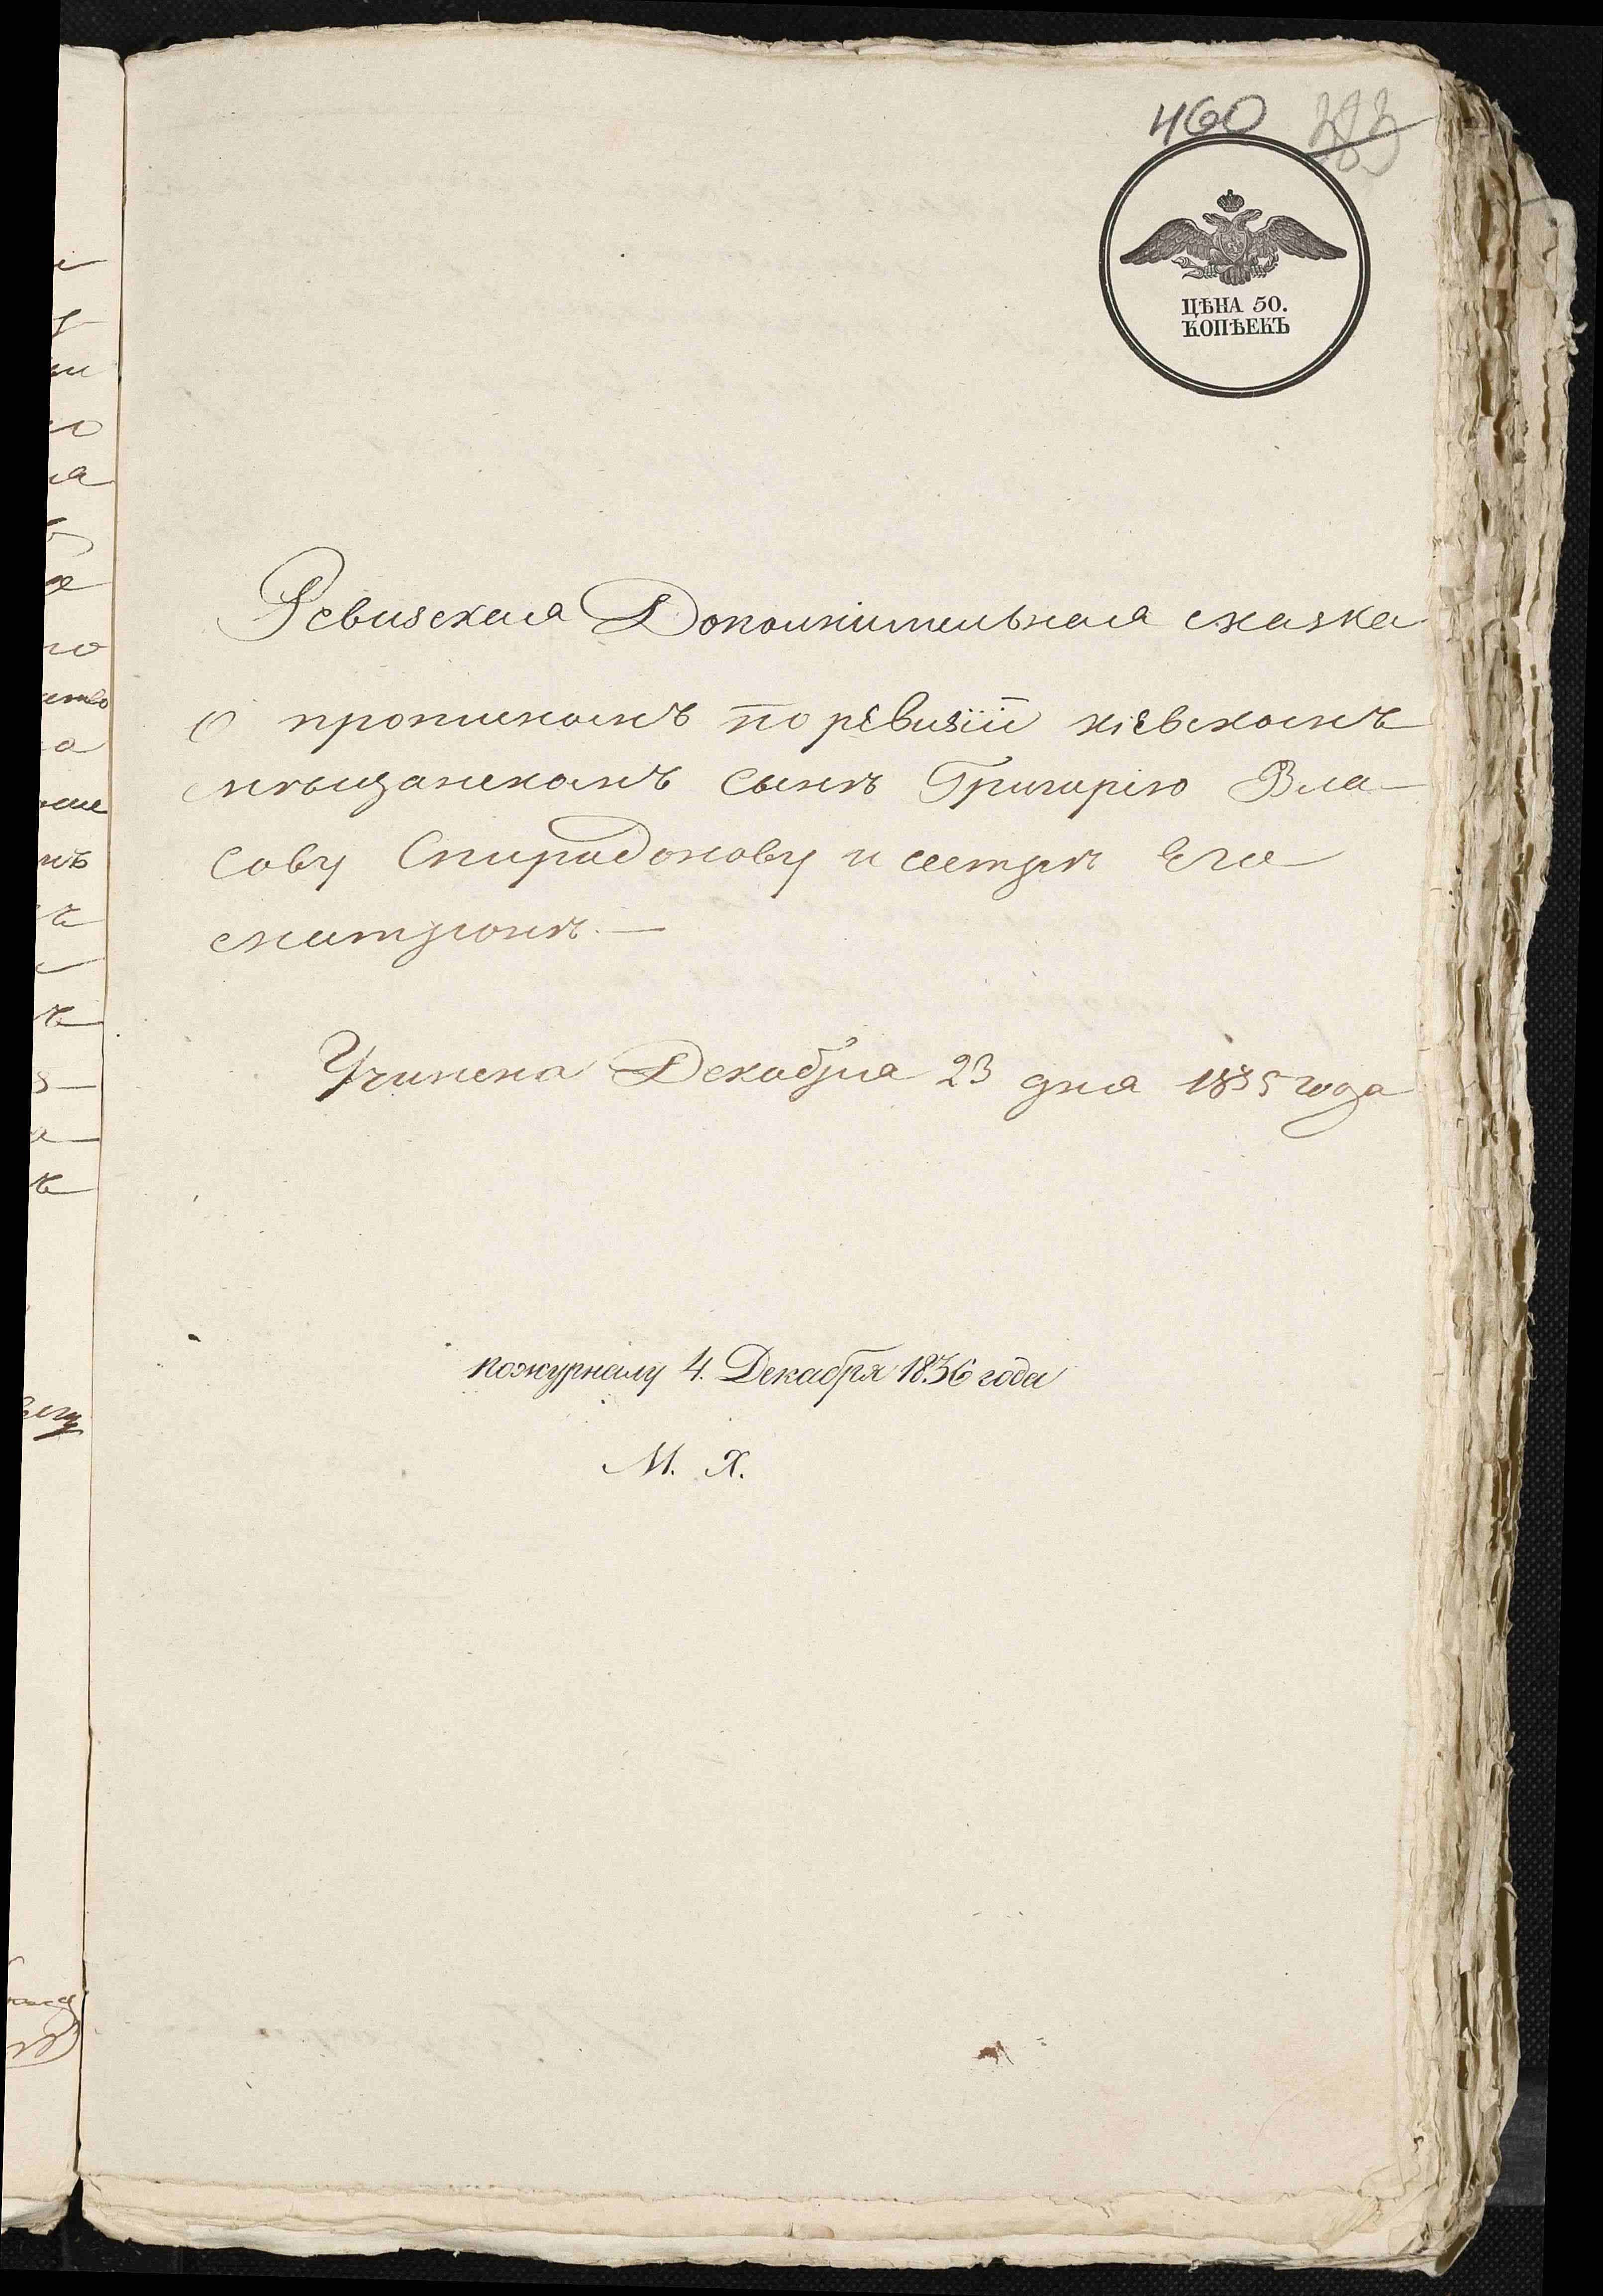 460
ЦѢНА 50.
КОПѢЕКЪ
Ревизская Дополнительная сказка
О прописномъ по ревизіи кіевскомъ
мѣщанскомъ сынѣ Григорію Вла-
сову Спиридонову и сестрѣ Его
Учинена Декабря 23 дня 1835 года
пожурналу 4. Декабря 1836 года
М. Х.